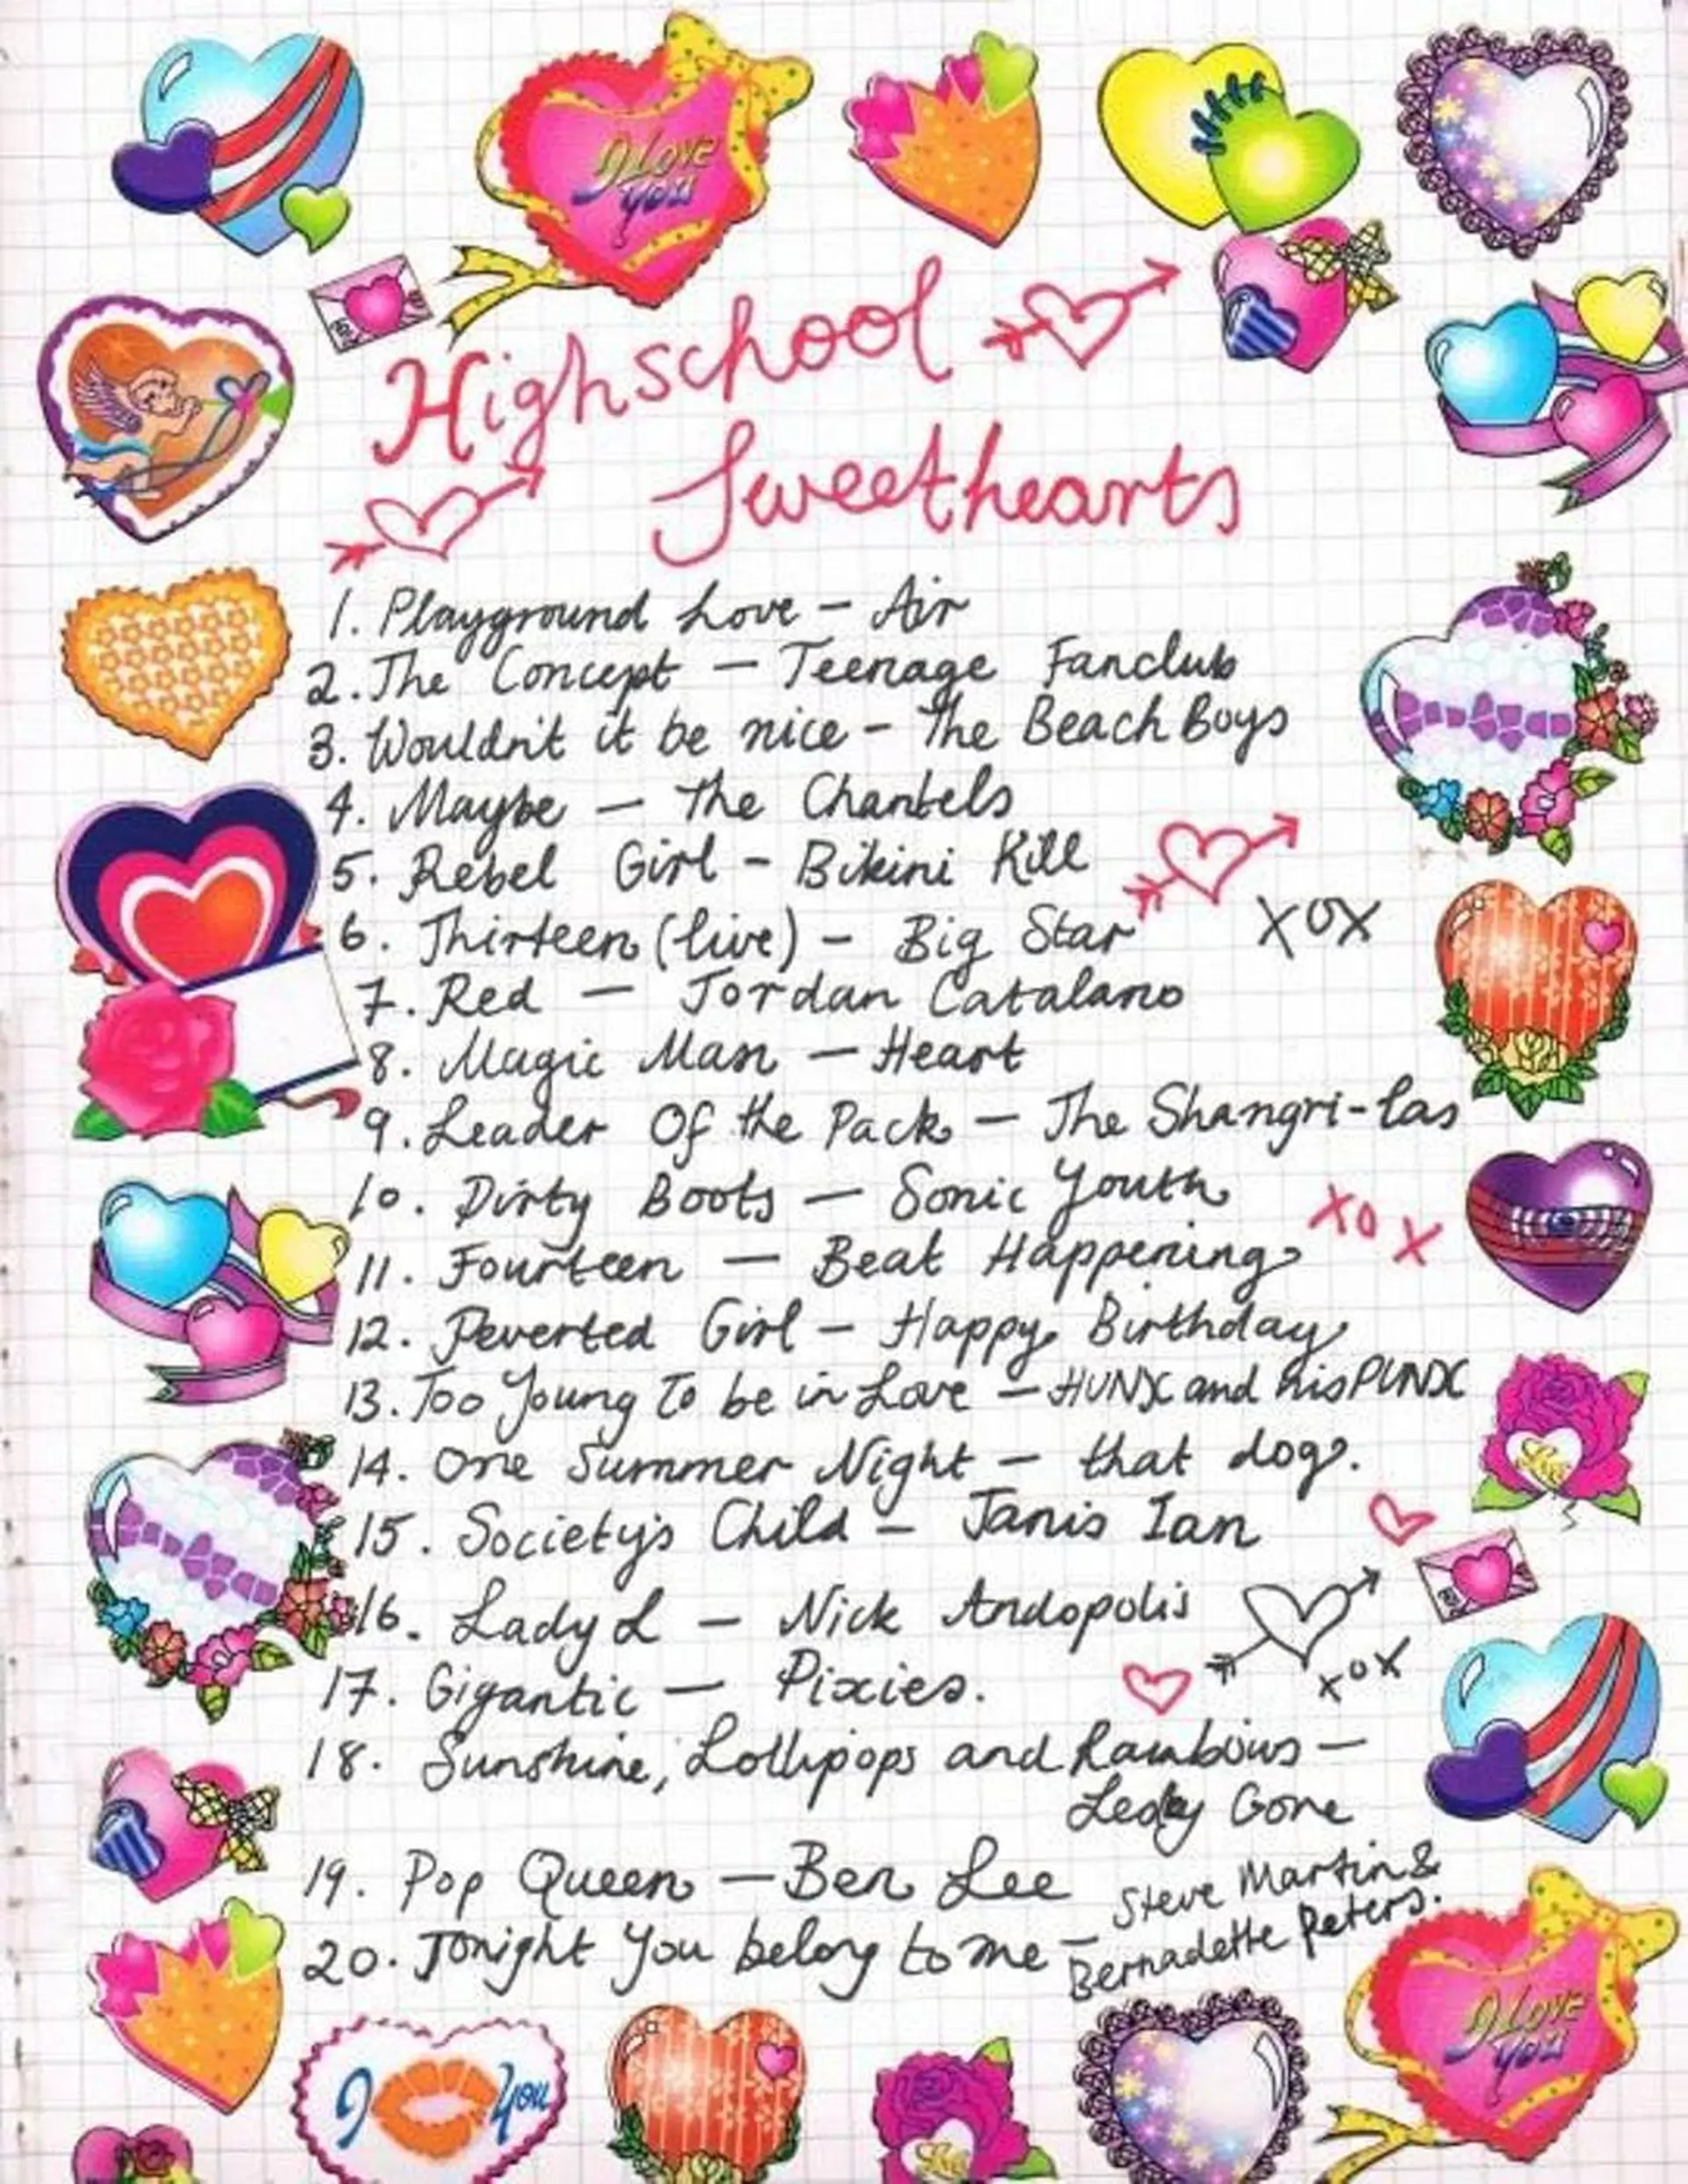 I LOVE
YOU
Highschool
Sweethearts
1. Playground Love - Air
2. The Concept - Teenage Fanclub
3. Wouldn't it be nice - The Beach Boys
4. Maybe - The Chantels
5. Rebel Girl - Bikini Kill
6. Thirteen (live) - Big Star
XOX
7. Red - Jordan Catalano
8. Magic Man - Heart
9. Leader Of the Pack - The Shangri-las
10. Dirty Boots - Sonic Youth
XOX
11. Fourteen - Beat Happening
12. Peverted Girl - Happy Birthday
13. Too Young To be in Love - HUNX and his PUNX
14. One Summer Night - that dog.
15. Society's Child - Janis Ian
16. Lady L - Nick Andopolis
XOX
17. Gigantic - Pixies.
18. Sunshine, Lollipops and Rainbows -
Lesley Gore
19. Pop Queen - Ben Lee
20. Tonight You belong to me - Steve Martin &
Bernadette Peters.
I LOVE
YOU
I You